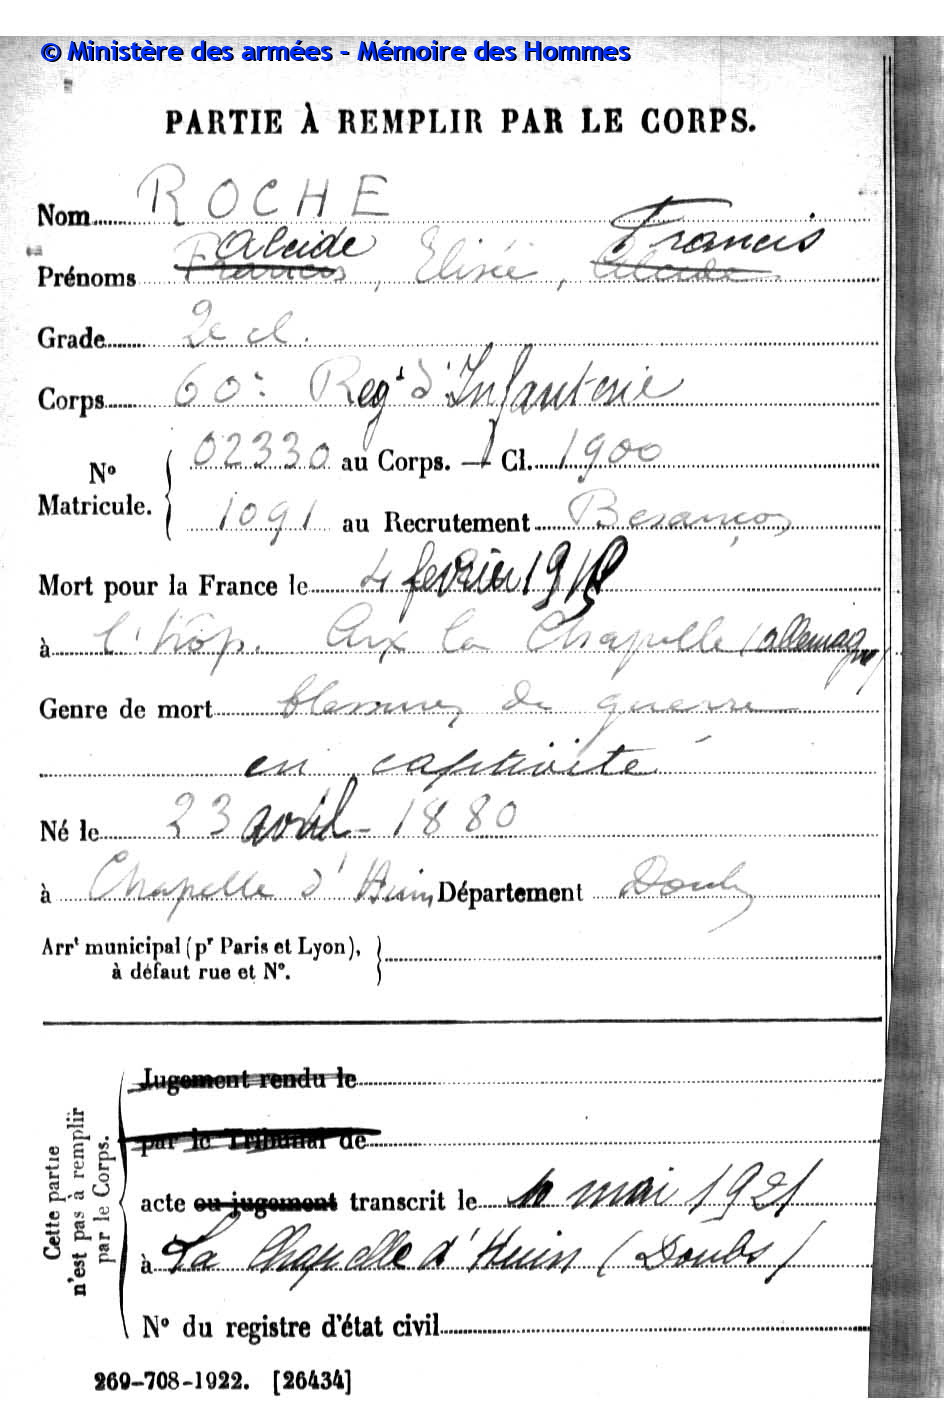 © Ministère des armées - Mémoire des Hommes
PARTIE À REMPLIR PAR LE CORPS.
Nom ROCHE
Alcide Francis
Prénoms Francis, Elisée, Alcide
Grade 2e cl.
Corps 60e Regt d'Infanterie
N° Matricule. 02330 au Corps. — Cl. 1900
1091 au Recrutement Besançon
Mort pour la France le 4 février 1915
à l'hôp. Aix la Chapelle (allemagne)
Genre de mort blessures de guerre
en captivité
Né le 23 avril 1880
à Chapelle d'Huin Département Doubs
Arrt municipal (pr Paris et Lyon),
à défaut rue et N°.
Cette partie n'est pas à remplir par le Corps.
Jugement rendu le
par le Tribunal de
acte ou jugement transcrit le mai 1921
à La Chapelle d'Huin (Doubs)
N° du registre d'état civil
269-708-1922. [26434]